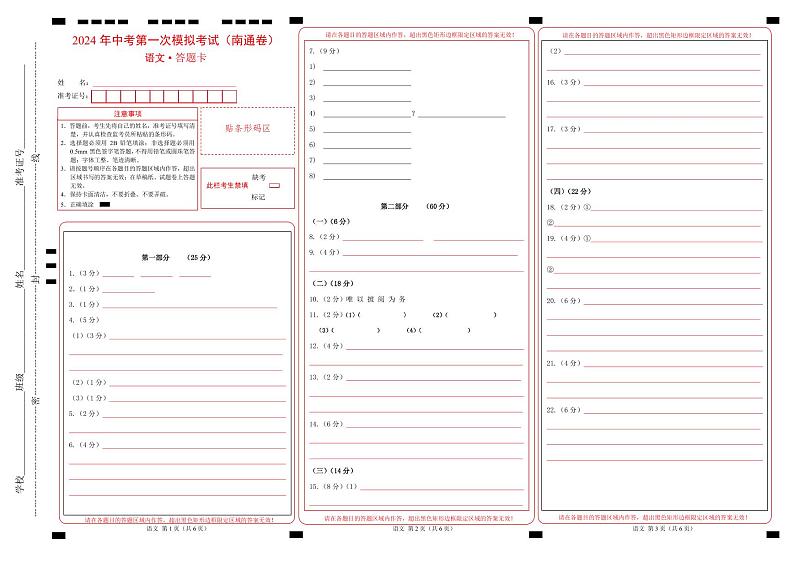 学校
班级
姓名
准考证号
密
封
线
2024 年中考第一次模拟考试（南通卷）
语文·答题卡
姓 名：
准考证号：
注意事项
1．答题前，考生先将自己的姓名，准考证号填写清
楚，并认真检查监考员所粘贴的条形码。
2．选择题必须用 2B 铅笔填涂；非选择题必须用
0.5mm 黑色签字笔答题，不得用铅笔或圆珠笔答
题；字体工整、笔迹清晰。
3．请按题号顺序在各题目的答题区域内作答，超出
区域书写的答案无效；在草稿纸、试题卷上答题
无效。
4．保持卡面清洁，不要折叠、不要弄破。
5．正确填涂
贴条形码区
此栏考生禁填
缺考
标记
第一部分 （25 分）
1.（3 分）
2.（1 分）
3.（1 分）
4.（5 分）
(1)（3 分）
(2)（1 分）
(3)（1 分）
5.（2 分）
6.（4 分）
请在各题目的答题区域内作答，超出黑色矩形边框限定区域的答案无效！
语文 第 1 页（共 6 页）
请在各题目的答题区域内作答，超出黑色矩形边框限定区域的答案无效！
7.（9 分）
1)
2)
3)
4) ？
5)
6)
7)
8)
第二部分 （60 分）
（一）(6 分)
8.（2 分）
9.（4 分）
（二）(18 分)
10.（2 分）唯 以 披 阅 为 务
11.（2 分）(1)（ ） (2)（ ）
(3)（ ） (4)（ ）
12.（4 分）
13.（2 分）
14.（6 分）
（三）(14 分)
15.（8 分）(1)
请在各题目的答题区域内作答，超出黑色矩形边框限定区域的答案无效！
语文 第 2 页（共 6 页）
请在各题目的答题区域内作答，超出黑色矩形边框限定区域的答案无效！
(2)
16.（3 分）
17.（3 分）
（四）(22 分)
18.（2 分）①
②
19.（4 分）①
②
20.（6 分）
21.（4 分）
22.（6 分）
请在各题目的答题区域内作答，超出黑色矩形边框限定区域的答案无效！
语文 第 3 页（共 6 页）